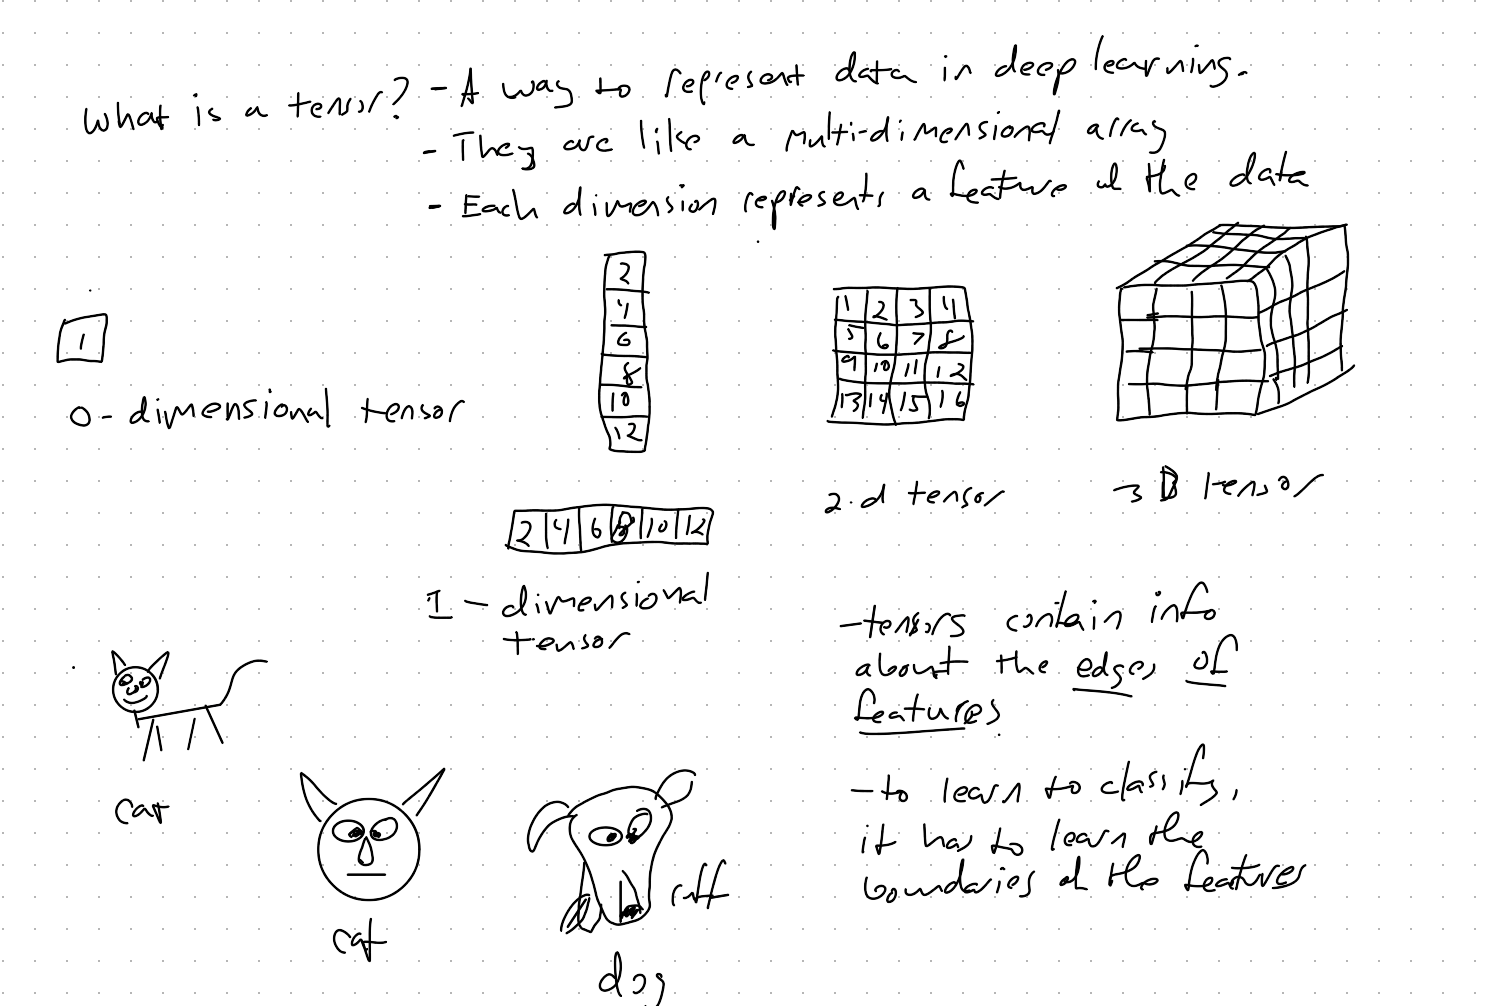 What is a tensor?
- A way to represent data in deep learning.
- They are like a multi-dimensional array
- Each dimension represents a feature of the data
1
0 - dimensional tensor
2
4
6
8
10
12
2 4 6 8 10 12
1 - dimensional
tensor
1 2 3 4
5 6 7 8
9 10 11 12
13 14 15 16
2-d tensor
3D tensor
- tensors contain info
about the edges of
features
- to learn to classify,
it has to learn the
boundaries of the features
cat
cat
ruff
dog